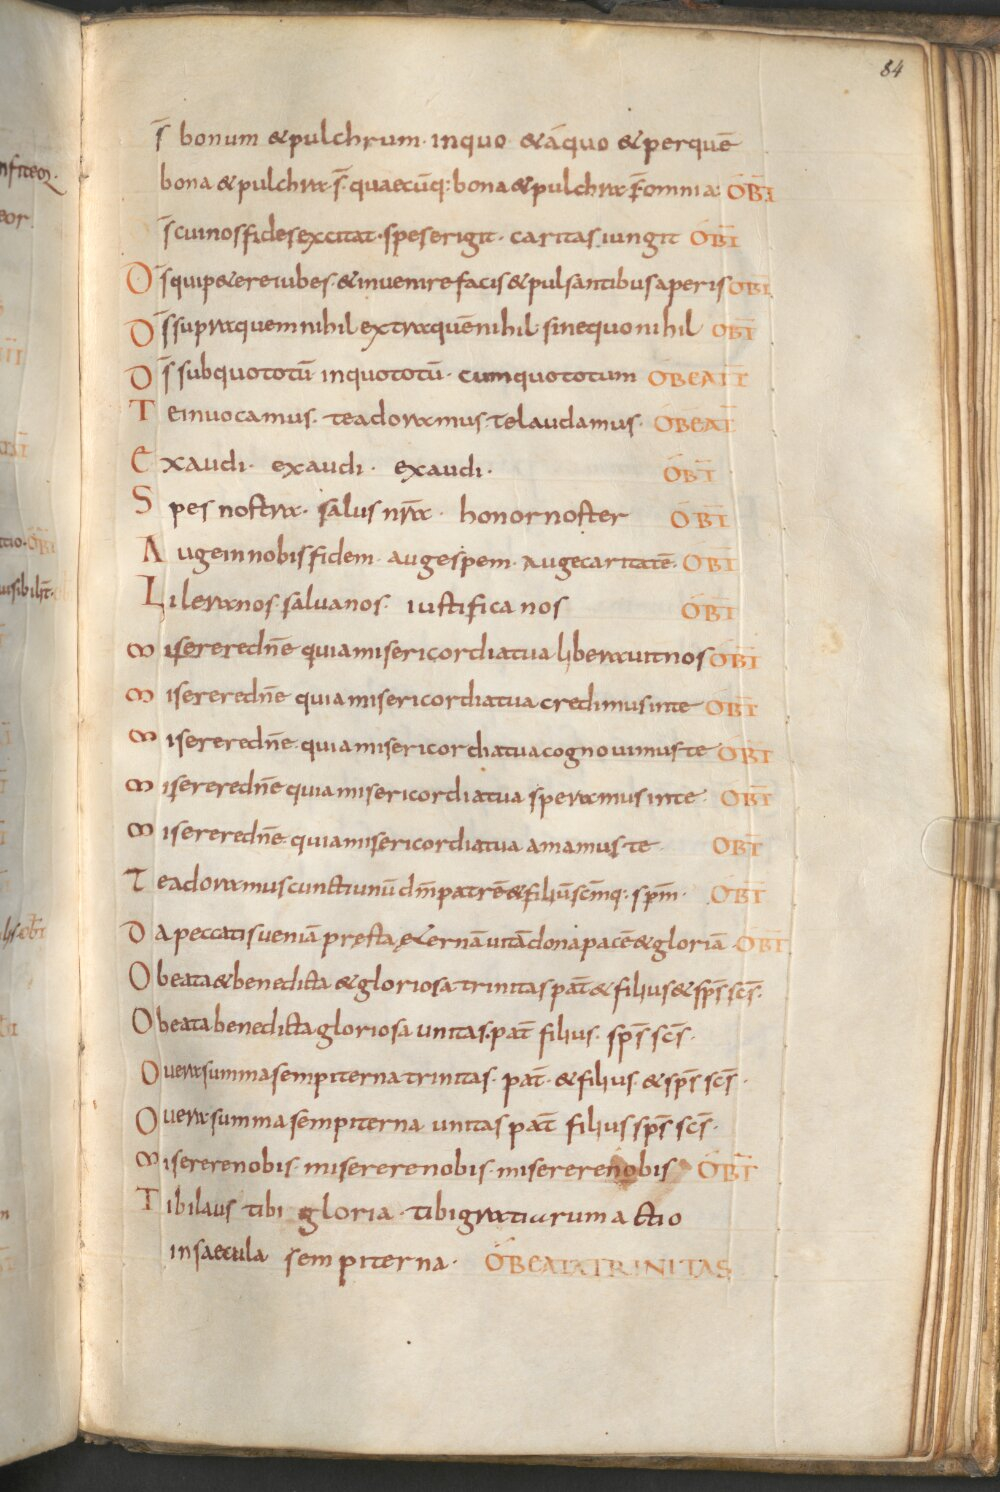 84
s̄ bonum & pulchrum · in quo & a quo & per quē
bona & pulchra s̄ · quaecūq: bona & pulchra s̄ omnia · OB̄T̄
s̄ cui nos fides excitat · spes erigit · caritas iungit OB̄T̄
D s̄ qui p&ere iubes · & invenire facis & pulsantibus aperis OB̄T̄
D s̄ supra quem nihil extra quē nihil sine quo nihil OB̄T̄
D s̄ sub quo totū in quo totū · cum quo totum OBEAT̄
T e invocamus · te adoramus · te laudamus · OBEAT̄
E xaudi · exaudi · exaudi · OB̄T̄
S pes nostra · salus nr̄a · honor noster OB̄T̄
A uge in nobis fidem · auge spem · auge caritatē · OB̄T̄
L ibera nos · salva nos · iustifica nos OB̄T̄
M iserere dn̄e quia misericordia tua liberavit nos OB̄T̄
M iserere dn̄e quia misericordia tua credimus in te OB̄T̄
M iserere dn̄e · quia misericordia tua cognovimus te OB̄T̄
M iserere dn̄e quia misericordia tua speramus in te · OB̄T̄
M iserere dn̄e quia misericordia tua amamus te · OB̄T̄
T e adoramus cuncti unū dm̄ patrē & filiū scm̄q: spm̄ · OB̄T̄
D a peccatis veniā pręsta ę&ernā vitā dona pacē & gloriā OB̄T̄
O beata & benedicta & gloriosa trinitas pat̄ & filius & sp̄s sc̄s ·
O beata benedicta gloriosa unitas · pat̄ filius · sp̄s sc̄s ·
O vera summa sempiterna trinitas · pat̄ · & filius · & sp̄s sc̄s ·
O vera · summa sempiterna unitas pat̄ filius sp̄s sc̄s ·
M iserere nobis · miserere nobis · miserere nobis OB̄T̄
T ibi laus tibi gloria · tibi gratiarum actio
in saecula sempiterna · OBEATA TRINITAS